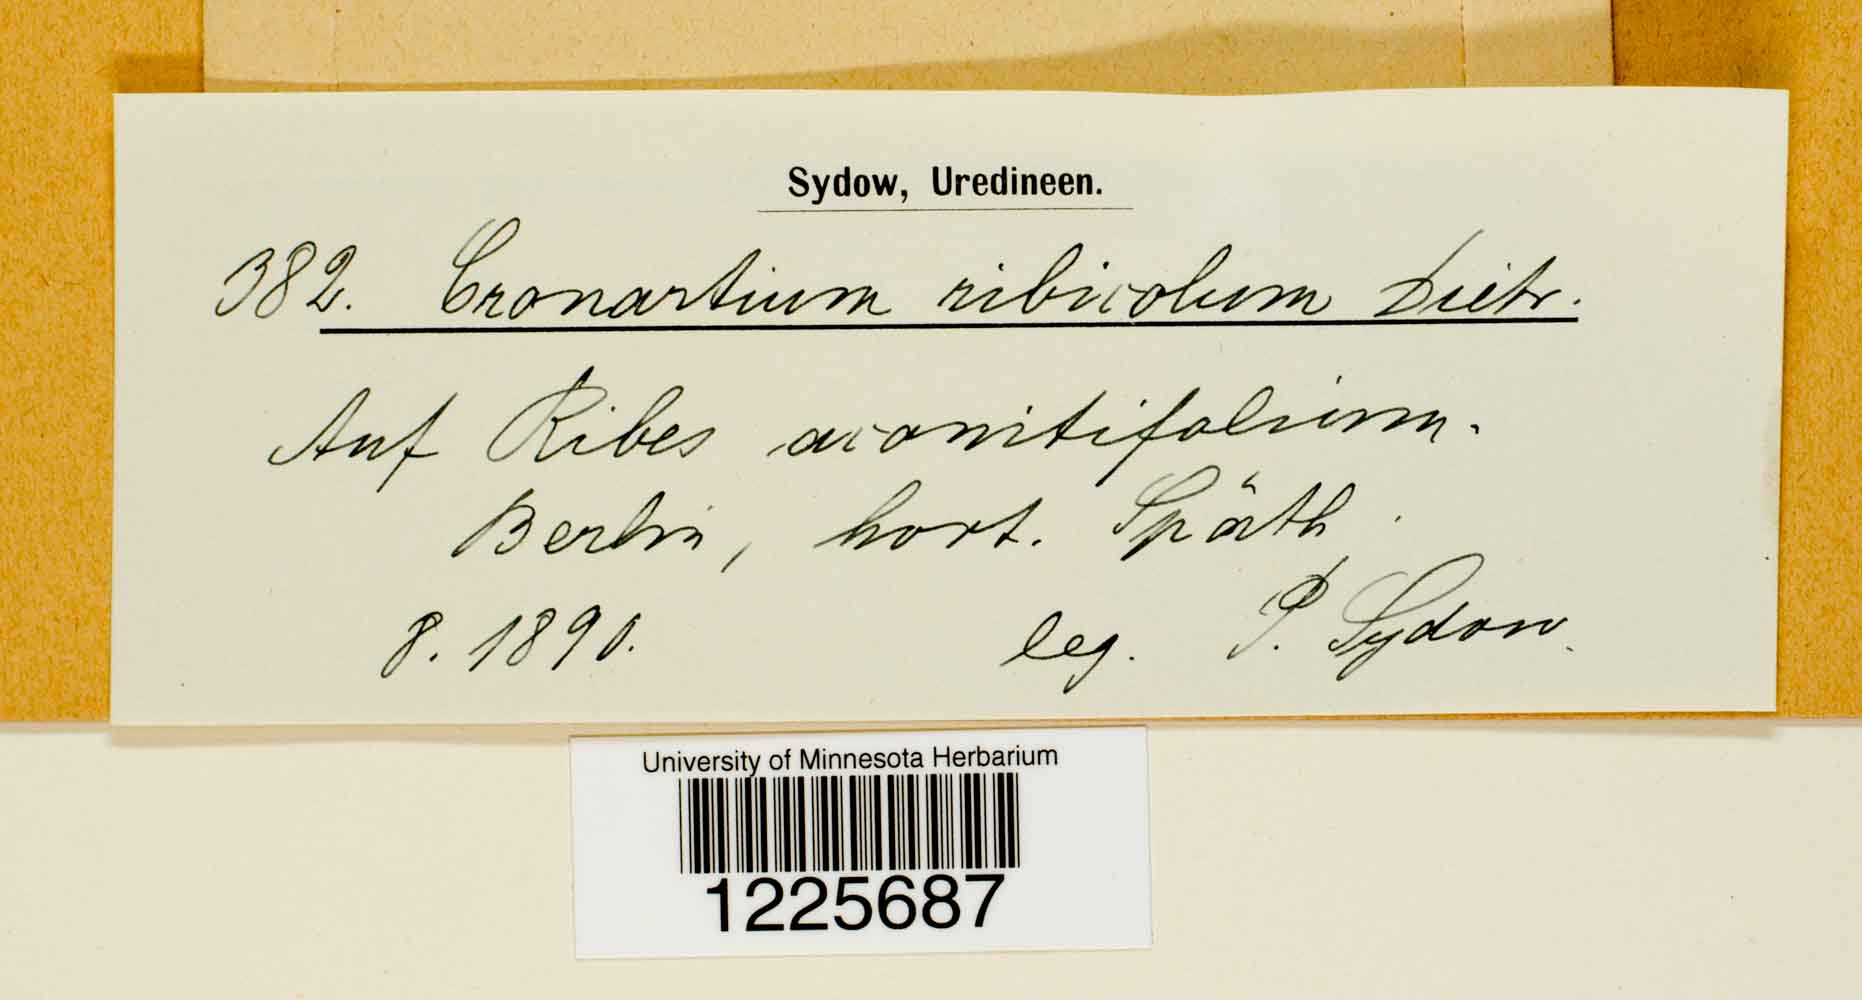 Sydow, Uredineen.
382. Cronartium ribicolum Dietr.
Auf Ribes aconitifolium.
Berlin, hort. Späth.
8. 1890. leg. P. Sydow.
University of Minnesota Herbarium
1225687